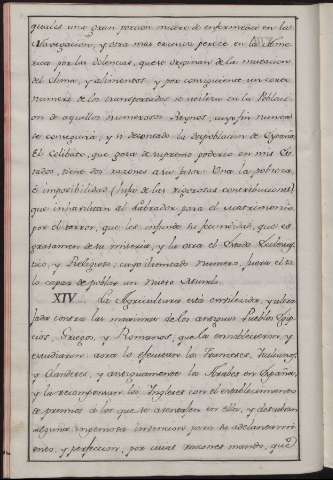 una gran porcion muere de enfermedad en la
Navegacion, y otra mas crecida perece en la Ame
rica por las dolencias, que se originan de la mutacion
del Clima, y alimentos; y por consiguiente un corto
numero de los transportados se utiliza en la Poblaci
on de aquellos numerosos Reynos, cuyo fin nunca
se conseguirá, y si de contado la despoblacion de España.
El Celibato, que goza de supremo poderio en mis Es
tados, tiene dos razones a su fabor: Una la pobreza,
è imposibilidad (hija de las rigorosas contribuciones)
que inhavilitan al Labrador para el matrimonio
por el terror, que les infunde su fecundidad, que es
gravamen de su miseria; y la otra el Estado Eclesias
tico, y Religioso; cuyo ilimitado numero, fuera el so
lo capaz de poblar un Nuevo Mundo.
XIV. La Agricultura está envilecida, y ultra
jada contra las maximas de los antiguos Pueblos Egip
cios, Griegos, y Romanos, que la ennoblecieron, y
estudiaron: aora lo ejecutan los Franceses, Italianos,
y Olandeses, y antiguamente los Arabes en España,
y la recompensan los Ingleses con el establecimiento
de premios à los que se abentajan en ella, y descubran
alguna ingeniosa invencion para su adelantami
ento, y perfeccion; por cuias razones mando, que